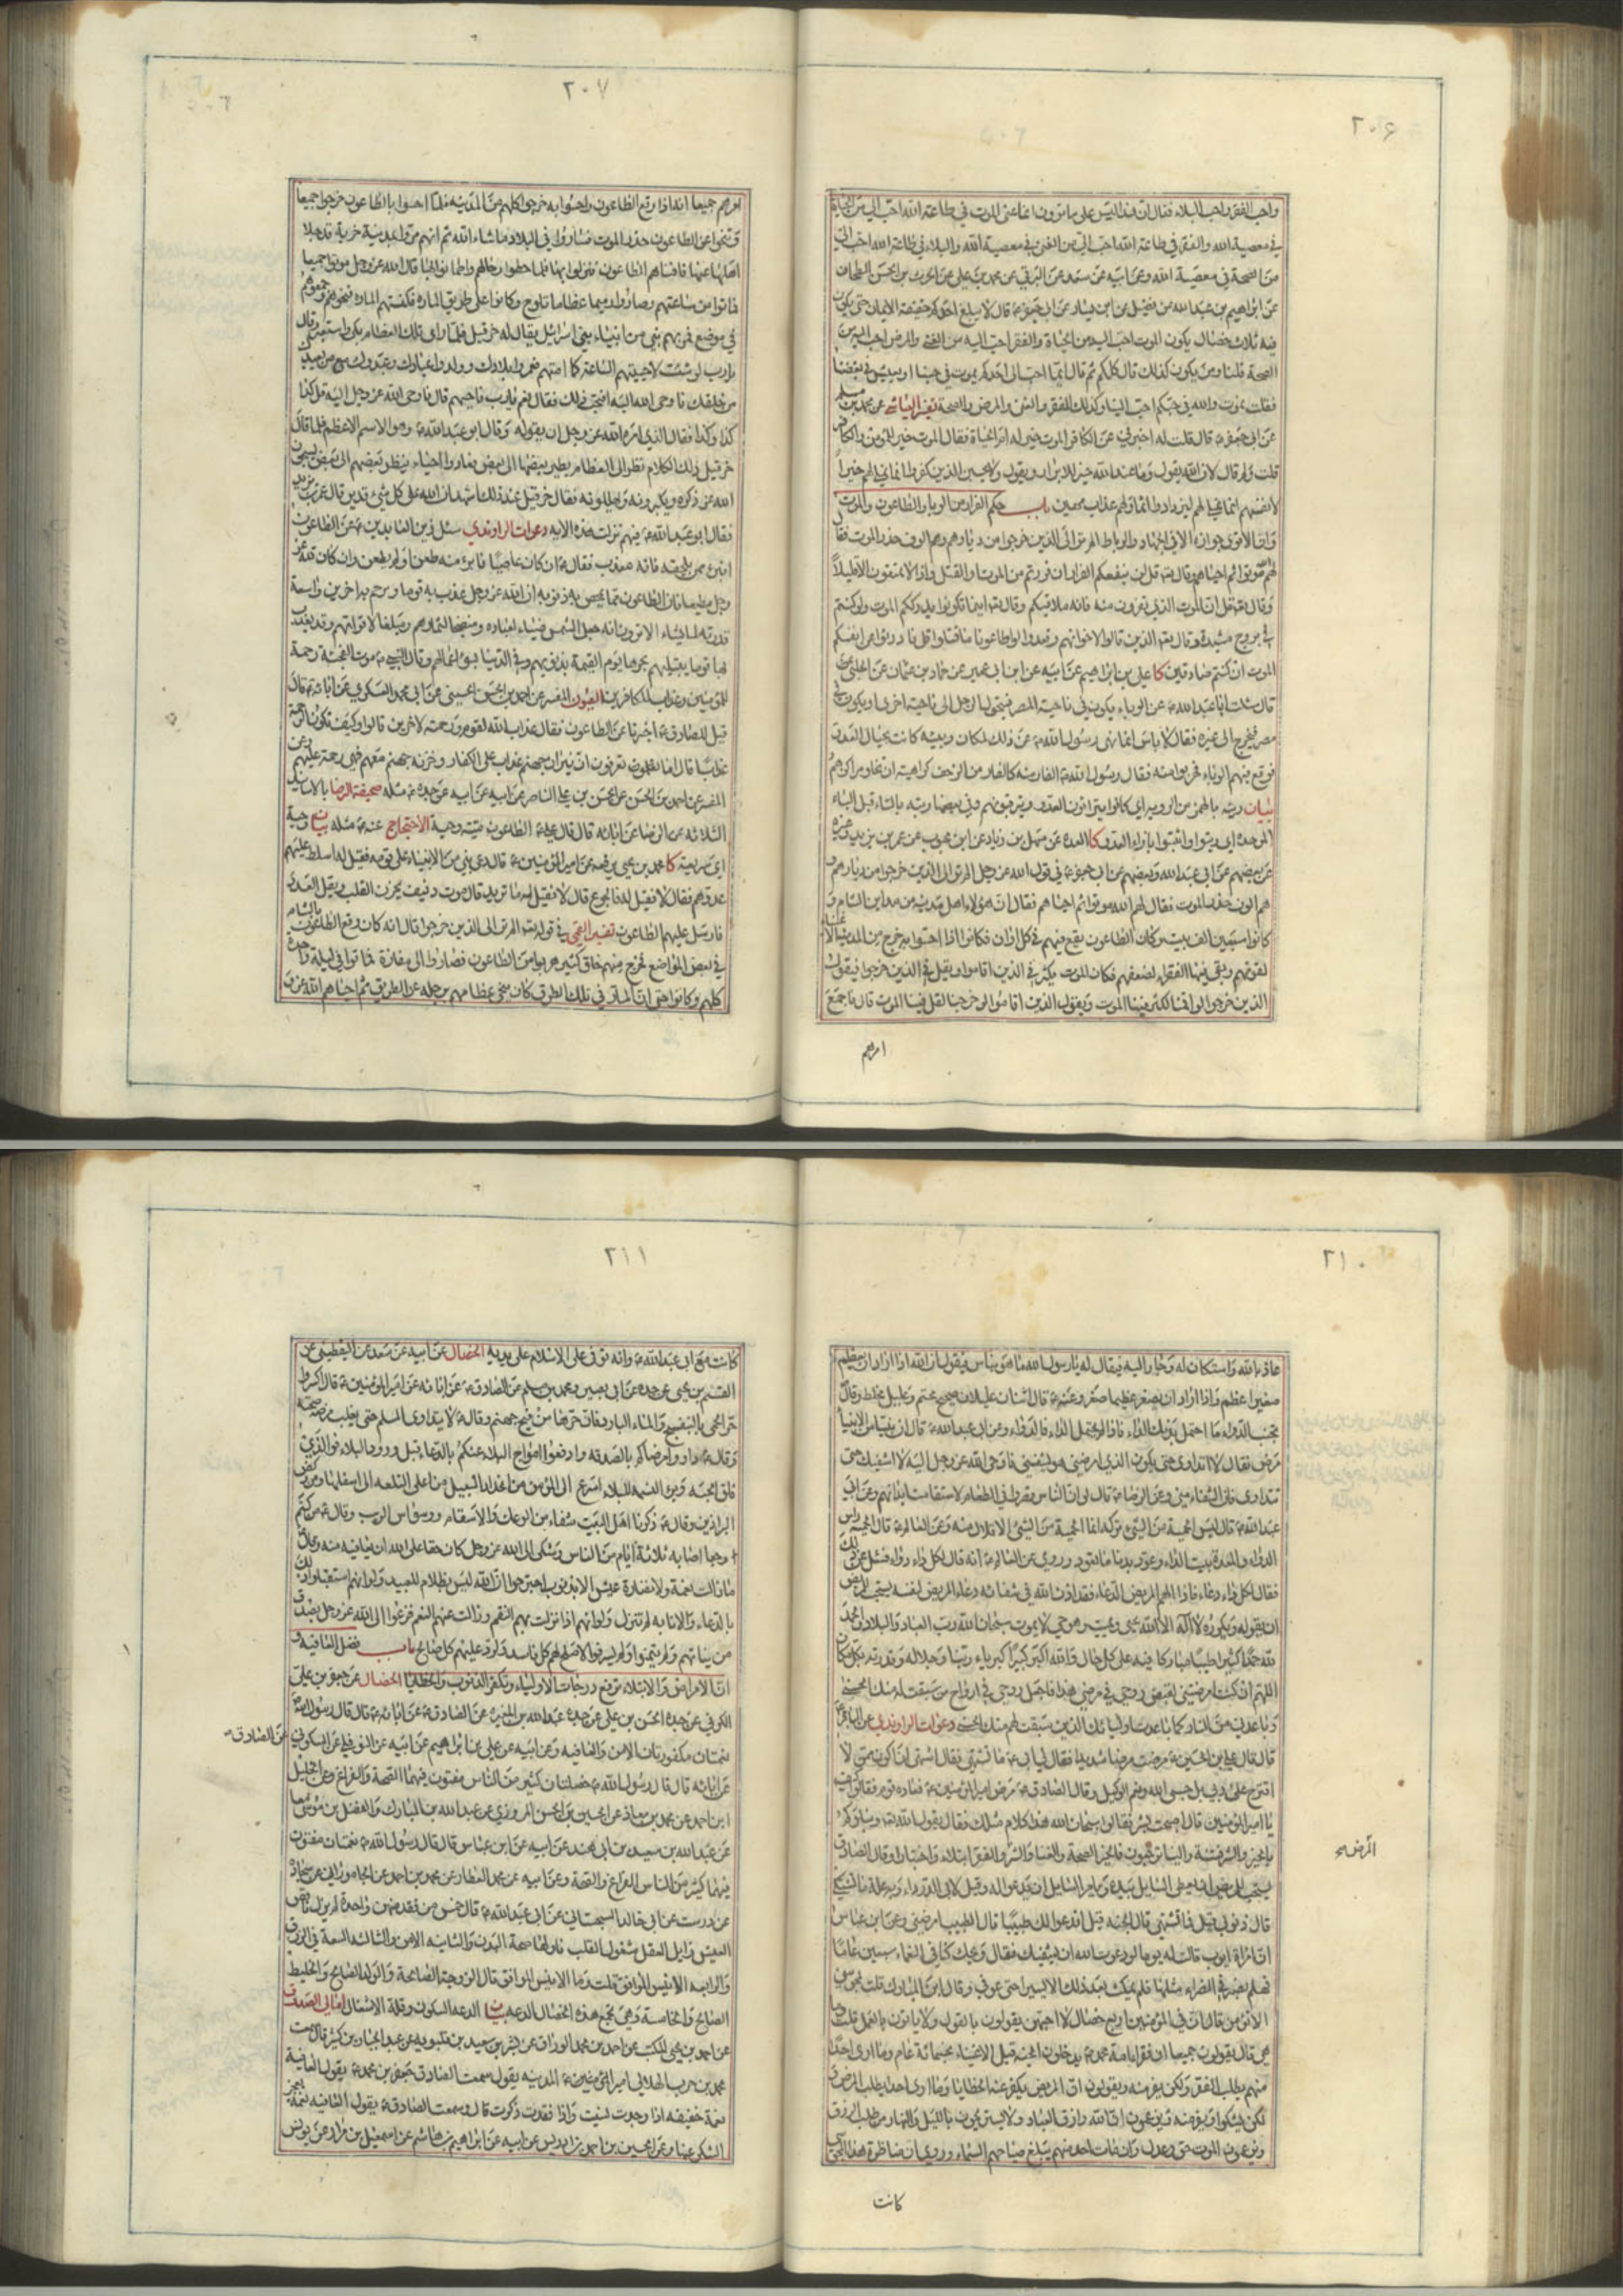 ٢٠۶
واحب الفقر واحب البلاء فقال ان هذا ليس على ما ترون انما عنى الموت في طاعة الله احب الي من الحياة
في معصية الله والفقر في طاعة الله احب الي من الغنى في معصية الله والبلاء في طاعة الله احب الي
من الصحة في معصية الله وعن ابيه عن سعد عن البرقي عن محمد بن علي عن الحرث بن الحسن الطحان
عن ابراهيم بن عبد الله عن فضيل عن ابن يسار عن ابي جعفر ع قال لا يبلغ احدكم حقيقة الايمان حتى يكون
فيه ثلاث خصال يكون الموت احب اليه من الحياة والفقر احب اليه من الغنى والمرض احب اليه من
الصحة قلنا ومن يكون كذلك قال كلكم ثم قال ايما احب الى احدكم يموت في حبنا او يعيش في بغضنا
فقلت نموت والله في حبكم احب الينا وكذلك الفقر والغنى والمرض والصحة تفسير العياشي عن محمد بن مسلم
عن ابي جعفر ع قال قلت له اخبرني عن الكافر الموت خير له ام الحياة فقال الموت خير للمؤمن والكافر
قلت ولم قال لان الله يقول وما عند الله خير للابرار ويقول ولا يحسبن الذين كفروا انما نملي لهم خيرا
لانفسهم انما نملي لهم ليزدادوا اثما ولهم عذاب مهين باب حكم الفرار من الوباء والطاعون والموت
لهم موتوا ثم احياهم وقال تعالى قل لن ينفعكم الفرار ان فررتم من الموت والقتل واذا لا تمتعون الا قليلا
وقال تعالى قل ان الموت الذي تفرون منه فانه ملاقيكم وقال تعالى اينما تكونوا يدرككم الموت ولو كنتم
في بروج مشيدة وقال تعالى الذين قالوا لاخوانهم وقعدوا لو اطاعونا ما قتلوا قل فادرؤا عن انفسكم
الموت ان كنتم صادقين كا علي بن ابراهيم عن ابيه عن ابن ابي عمير عن حماد بن عثمان عن الحلبي
قال سئلت ابا عبد الله ع عن الوباء يكون في ناحية المصر فيتحول الرجل الى ناحية اخرى او يكون في
مصر فيخرج الى غيره فقال لا باس انما نهى رسول الله ص عن ذلك لمكان ربيئة كانت بحيال العدو
فوقع فيهم الوباء فهربوا منه فقال رسول الله ص الفار منه كالفار من الزحف كراهية ان تخلو مراكزهم
الموحدة اي رتبوا واثبتوا بازاء العدو كا العدة عن سهل بن زياد عن ابن محبوب عن عمر بن يزيد وغيره
عن بعضهم عن ابي عبد الله وبعضهم عن ابي جعفر ع في قول الله عز وجل الم تر الى الذين خرجوا من ديارهم و
هم الوف حذر الموت فقال لهم الله موتوا ثم احياهم فقال ان هؤلاء اهل مدينة من مداين الشام و
كانوا سبعين الف بيت وكان الطاعون يقع فيهم في كل اوان فكانوا اذا احسوا به خرج من المدينة الاغنياء
لقوتهم وبقي فيها الفقراء لضعفهم فكان الموت يكثر في الذين اقاموا ويقل في الذين خرجوا فيقول
الذين خرجوا لو اقمنا لكثر فينا الموت ويقول الذين اقاموا لو خرجنا لقل فينا الموت قال فاجتمع
امرهم
٢٠٧
امرهم جميعا انه اذا وقع الطاعون واحسوا به خرجوا كلهم من المدينة فلما احسوا بالطاعون خرجوا جميعا
وتنحوا عن الطاعون حذر الموت فساروا في البلاد ما شاء الله ثم انهم مروا بمدينة خربة قد جلا
اهلها عنها فافناهم الطاعون فنزلوا بها فلما حطوا رحالهم واطمانوا بها قال الله عز وجل موتوا جميعا
فماتوا من ساعتهم وصاروا رميما عظاما تلوح وكانوا على طريق المارة فكنستهم المارة فنحوهم وجمعوهم
في موضع فمر بهم نبي من انبياء بني اسرائيل يقال له حزقيل فلما راى تلك العظام بكى واستعبر وقال
يا رب لو شئت لاحييتهم الساعة كما امتهم فعمروا بلادك وولدوا عبادك وعبدوك مع من يعبدك
من خلقك فاوحى الله اليه افتحب ذلك فقال نعم يا رب فاحيهم قال فاوحى الله عز وجل اليه قل كذا
كذا وكذا فقال الذي امره الله عز وجل ان يقوله وقال ابو عبد الله ع وهو الاسم الاعظم فلما قال
حزقيل ذلك الكلام نظر الى العظام يطير بعضها الى بعض فعادوا احياء ينظر بعضهم الى بعض يسبحون
الله عز ذكره ويكبرونه ويهللونه فقال حزقيل عند ذلك اشهد ان الله على كل شئ قدير قال عمر بن يزيد
فقال ابو عبد الله ع فيهم نزلت هذه الاية دعوات الراوندي سئل زين العابدين ع عن الطاعون
انبرء ممن يلحقه فانه معذب فقال ع ان كان عاصيا فابرء منه طعن او لم يطعن وان كان لله عز
وجل مطيعا فان الطاعون مما يمحص به ذنوبه ان الله عز وجل عذب به قوما ويرحم به اخرين واسعة
قدرته لما يشاء الا ترون انه جعل الشمس ضياء لعباده ومنضجا لثمارهم ومبلغا لاقواتهم وقد يعذب
بها قوما يبتليهم بحرها يوم القيمة بذنوبهم وفي الدنيا بسوء اعمالهم وقال النبي ص موت الفجئة رحمة
للمؤمنين وعذاب للكافرين العيون المفسر عن احمد بن الحسن الحسيني عن ابي محمد العسكري عن ابائه ع قال
قيل للصادق ع اخبرنا عن الطاعون فقال عذاب الله لقوم ورحمة لاخرين قالوا وكيف تكون الرحمة
عذابا قال اما تعرفون ان نيران جهنم عذاب على الكفار وخزنة جهنم معهم فهي رحمة عليهم وعن
المفسر عن احمد بن الحسن عن الحسن بن علي الناصر عن ابيه عن ابيه عن جده ع مثله صحيفة الرضا بالاسانيد
الثلاثة عن الرضا عن ابائه قال قال علي ع الطاعون ميتة وحية الاحتجاج عنه ع مثله بيان وحية
اي سريعة كا محمد بن يحيى يرفعه عن امير المؤمنين ع قال دعى نبي من الانبياء على قومه فقيل له اسلط عليهم
عدوهم فقال لا فقيل له فالجوع قال لا فقيل له ما تريد قال موت دفيف يحزن القلب ويقل العدد
فارسل عليهم الطاعون تفسير القمي في قوله تعالى الم تر الى الذين خرجوا قال انه كان وقع الطاعون بالشام
في بعض المواضع فخرج منهم خلق كثير هربوا من الطاعون فصاروا الى مفازة فماتوا في ليلة واحدة
كلهم وكانوا حتى ان المار في تلك الطرق كان ينحي عظامهم برجله عن الطريق ثم احياهم الله عز و
٢١٠
صغيرا عظم واذا اراد ان يصغر عظيما صغر وعنه ع قال اثنان عليلان صحيح محتم وعليل مخلط وقال
تجنب الدواء ما احتمل بدنك الداء فاذا لم يحتمل الداء فالدواء وعن ابي عبد الله ع قال ان نبيا من الانبياء
مرض فقال لا اتداوى حتى يكون الذي امرضني هو يشفيني فاوحى الله عز وجل اليه لا اشفيك حتى
تتداوى فان الشفاء مني وعن الرضا ع قال لو ان الناس قصروا في الطعام لاستقامت ابدانهم وعن ابي
عبد الله ع قال ليس الحمية من الشئ تركه انما الحمية من الشئ الاقلال منه وعن العالم ع قال الحمية راس
الدواء والمعدة بيت الداء وعود بدنا ما تعود وروي عن العالم ع انه قال لكل داء دواء فسئل عن ذلك
فقال لكل داء دعاء فاذا الهم المريض الدعاء فقد اذن الله في شفائه دعاء المريض لنفسه يستحب للمريض
ان يقوله ويكرره لا اله الا الله يحيي ويميت وهو حي لا يموت سبحان الله رب العباد والبلاد والحمد
لله حمدا كثيرا طيبا مباركا فيه على كل حال والله اكبر كبيرا كبرياء ربنا وجلاله وقدرته بكل مكان
اللهم ان كنت امرضتني لقبض روحي في مرضي هذا فاجعل روحي في ارواح من سبقت له منك الحسنى
وباعدني من النار كما باعدت اولياءك الذين سبقت لهم منك الحسنى دعوات الراوندي عن الباقر ع
قال قال علي بن الحسين ع مرضت مرضا شديدا فقال لي ابي ع ما تشتهي فقلت اشتهي ان اكون ممن لا
يا امير المؤمنين قال اصبحت بشر فقالوا سبحان الله هذا كلام مثلك فقال يقول الله تعالى ونبلوكم
بالخير والشر فتنة والينا ترجعون فالخير الصحة والغنا والشر والفقر ابتلاء واختبارا وقال الصادق
المرض صح
قال ذنوبي قيل فما تشتهي قال الجنة قيل اندعو لك طبيبا قال الطبيب امرضني وعن ابن عباس
ان امراة ايوب قالت له يوما لو دعوت الله ان يشفيك فقال ويحك كنا في النعماء سبعين عاما
فهلم نصبر في الضراء مثلها فلم يمكث بعد ذلك الا يسيرا حتى عوفي وقال ابن المبارك قلت لمجوسي
الا تؤمن قال ان في المؤمنين اربع خصال لا احبهن يقولون بالقول ولا ياتون بالعمل قلت وما
هي قال يقولون جميعا ان فقراء امة محمد ص يدخلون الجنة قبل الاغنياء بخمسمائة عام وما ارى احدا
منهم يطلب الفقر ولكن يفر منه ويقولون ان المريض يكفر عنه الخطايا وما ارى احدا يطلب المرض و
لكن يشكو ويفر منه ويزعمون ان الله رازق العباد ولا يستريحون بالليل والنهار من طلب الرزق
ويزعمون الموت حق وعدل وان مات احد منهم يبلغ صياحهم السماء وروي ان مناظرة هذا المجوسي
كانت
٢١١
كانت مع ابي عبد الله ع وانه توفي على الاسلام على يديه الخصال عن ابيه عن سعد عن اليقطيني عن
القسم بن يحيى عن جده عن ابي بصير ومحمد بن مسلم عن الصادق ع عن ابائه عن امير المؤمنين ع قال اكسروا
حر الحمى بالبنفسج والماء البارد فان حرها من فيح جهنم وقال ع لا يتداوى المسلم حتى يغلب مرضه صحته
وقال ع داووا مرضاكم بالصدقة وادفعوا امواج البلاء عنكم بالدعاء قبل ورود البلاء فوالذي
فلق الحبة وبرء النسمة للبلاء اسرع الى المؤمن من انحدار السيل من اعلى التلعة الى اسفلها ومن ركض
البراذين وقال ع ذكرنا اهل البيت شفاء من الوعك والاسقام ووسواس الريب وقال ع من كتم
وجعا اصابه ثلاثة ايام من الناس وشكى الى الله عز وجل كان حقا على الله ان يعافيه منه وقال
ما زالت نعمة ولا نضارة عيش الا بذنوب اجترحوا ان الله ليس بظلام للعبيد ولو انهم استقبلوا ذلك
بالدعاء والانابة لم تنزل ولو انهم اذا نزلت بهم النقم وزالت عنهم النعم فزعوا الى الله عز وجل بصدق
من نياتهم ولم يتمنوا ولم يسرفوا لاصلح لهم كل فاسد ولرد عليهم كل صالح باب فضل العافية و
ان الامراض والابتلاء ترفع درجات الاولياء وتكفر الذنوب والخطايا الخصال عن جعفر بن علي
الكوفي عن جده الحسن بن علي عن جده عبد الله بن المغيرة عن الصادق ع عن ابائه ع قال قال رسول الله ص
نعمتان مكفورتان الامن والعافية وعن ابيه عن علي بن ابراهيم عن ابيه عن النوفلي عن السكوني
عن الصادق ع
عن ابائه قال قال رسول الله ص خصلتان كثير من الناس مفتون فيهما الصحة والفراغ وعن الخليل
ابن احمد عن محمد بن معاذ عن الحسين بن الحسن المروزي عن عبد الله بن المبارك والفضل بن موسى معا
عن عبد الله بن سعيد بن ابي هند عن ابيه عن ابن عباس قال قال رسول الله ص نعمتان مفتون
فيهما كثير من الناس الفراغ والصحة وعن ابيه عن محمد العطار عن محمد بن احمد عن الجاموراني عن سجادة
عن درست عن ابي خالد السجستاني عن ابي عبد الله ع قال خمس من فقد منهن واحدة لم يزل ناقص
العيش زايل العقل مشغول القلب فاولها صحة البدن والثانية الامن والثالثة السعة في الرزق
والرابعة الانيس الموافق قلت وما الانيس الموافق قال الزوجة الصالحة والولد الصالح والخليط
الصالح والخامسة وهي تجمع هذه الخصال الدعة بيان الدعة السكون وقلة الاشتغال امالي الصدوق
محمد بن حرب الهلالي امير المدينة يقول سمعت الصادق جعفر بن محمد ع يقول العافية
نعمة خفيفة اذا وجدت نسيت واذا فقدت ذكرت قال وسمعت الصادق ع يقول العافية نعمة يعجز
الشكر عنها وعن الحسين بن احمد بن ادريس عن ابيه عن ابراهيم بن هاشم عن اسمعيل بن مرار عن يونس